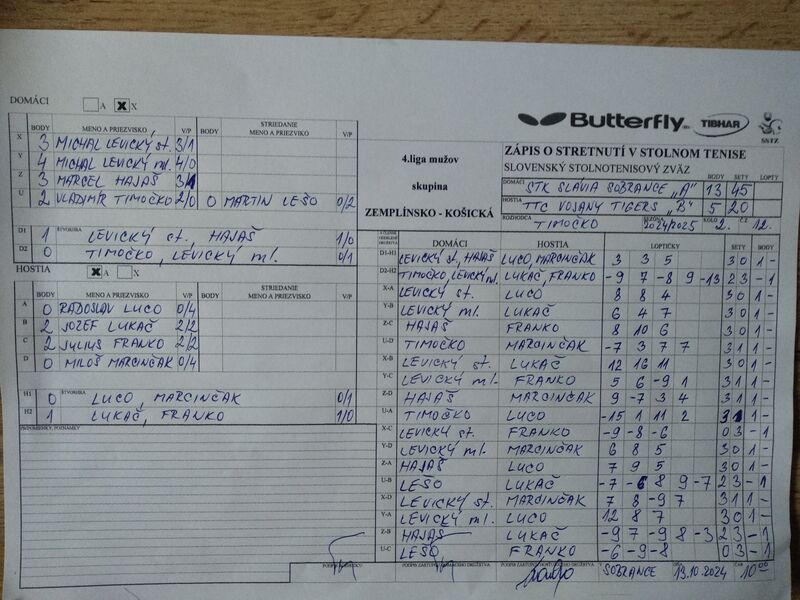 DOMÁCI A X
BODY MENO A PRIEZVISKO V/P BODY STRIEDANIE MENO A PRIEZVIKO V/P
X 3 MICHAL LEVICKÝ st. 3/1
Y 4 MICHAL LEVICKÝ ml. 4/0
Z 3 MARCEL HAJAŠ 3/1
U 2 VLADIMÍR TIMOČKO 2/0 0 MARTIN LEŠO 0/2
D1 1 ŠTVORHRA LEVICKÝ st., HAJAŠ 1/0
D2 0 TIMOČKO, LEVICKÝ ml. 0/1
HOSTIA A X
BODY MENO A PRIEZVISKO V/P BODY STRIEDANIE MENO A PRIEZVISKO V/P
A 0 RADOSLAV LUCO 0/4
B 2 JOZEF LUKAČ 2/2
C 2 JULIUS FRANKO 2/2
D 0 MILOŠ MARCINČAK 0/4
H1 0 ŠTVORHRA LUCO, MARCINČAK 0/1
H2 1 LUKAČ, FRANKO 1/0
PRIPOMIENKY, POZNÁMKY
4.liga mužov
skupina
ZEMPLÍNSKO - KOŠICKÁ
Butterfly TIBHAR SSTZ
ZÁPIS O STRETNUTÍ V STOLNOM TENISE
SLOVENSKÝ STOLNOTENISOVÝ ZVÄZ BODY SETY LOPTY
DOMÁCI STK SLAVIA SOBRANCE "A" 13 45
HOSTIA TTC VOJANY TIGERS "B" 5 20
ROZHODCA TIMOČKO SEZÓNA 2024/2025 KOLO 2. ČZ 12.
DOMÁCI HOSTIA LOPTIČKY SETY BODY
D1-H1 LEVICKÝ st., HAJAŠ LUCO, MARCINČAK 3 3 5 3 0 1 -
D2-H2 TIMOČKO, LEVICKÝ ml. LUKAČ, FRANKO -9 7 -8 9 -13 2 3 - 1
X-A LEVICKÝ st. LUCO 8 8 4 3 0 1 -
Y-B LEVICKÝ ml. LUKAČ 6 4 7 3 0 1 -
Z-C HAJAŠ FRANKO 8 10 6 3 0 1 -
U-D TIMOČKO MARCINČAK -7 3 7 7 3 1 1 -
X-B LEVICKÝ st. LUKAČ 12 16 11 3 0 1 -
Y-C LEVICKÝ ml. FRANKO 5 6 -9 1 3 1 1 -
Z-D HAJAŠ MARCINČAK 9 -7 3 4 3 1 1 -
U-A TIMOČKO LUCO -15 1 11 2 3 1 1 -
X-C LEVICKÝ st. FRANKO -9 -8 -6 0 3 - 1
Y-D LEVICKÝ ml. MARCINČAK 6 8 5 3 0 1 -
Z-A HAJAŠ LUCO 7 9 5 3 0 1 -
U-B LEŠO LUKAČ -7 -6 8 9 -7 2 3 - 1
X-D LEVICKÝ st. MARCINČAK 7 8 -9 7 3 1 1 -
Y-A LEVICKÝ ml. LUCO 12 8 7 3 0 1 -
Z-B HAJAŠ LUKAČ -9 7 -9 8 -3 2 3 - 1
U-C LEŠO FRANKO -6 -9 -8 0 3 - 1
V SOBRANCE DŇA 13.10.2024 ČAS 10 00